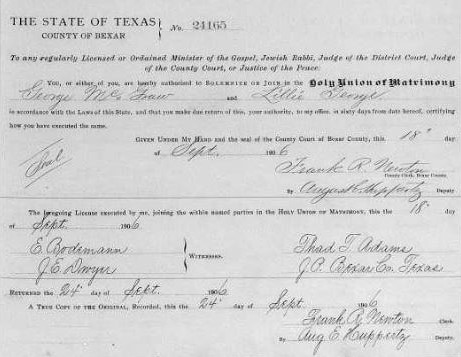 THE STATE OF TEXAS
COUNTY OF BEXAR
No. 24165
To any regularly Licensed or Ordained Minister of the Gospel, Jewish Rabbi, Judge of the District Court, Judge
of the County Court, or Justice of the Peace:
YOU, or either of you, are hereby authorized to SOLEMNIZE OR JOIN in the Holy Union of Matrimony
George Mc Graw and Lillie George
in accordance with the Laws of this State, and that you make due return of this, your authority, to my office, in sixty days from date hereof, certifying
how you have executed the same.
GIVEN UNDER MY HAND and the seal of the County Court of Bexar County, this 18" day
Seal
of Sept. 1906
Frank R. Newton
County Clerk, Bexar County.
By August E. Huppertz Deputy
The foregoing License executed by me, joining the within named parties in the HOLY UNION OF MATRIMONY, this the 18" day
of Sept. 1906
E. Bodemann
J. E. Dwyer
WITNESSES.
Thad T. Adams
J. P. Bexar Co. Texas
RETURNED the 24" day of Sept. 1906
A TRUE COPY OF THE ORIGINAL, Recorded, this the 24" day of Sept. 1906
Frank R. Newton Clerk.
By Aug E. Huppertz Deputy